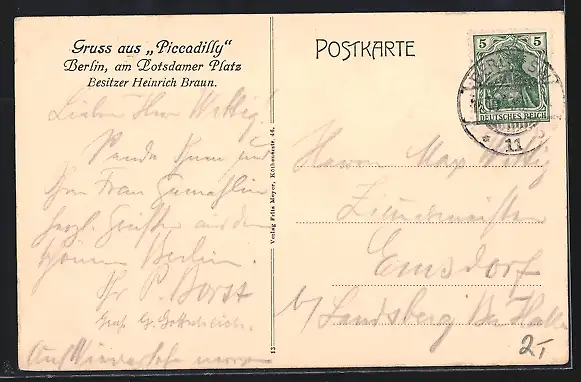 Gruss aus „Piccadilly“
Berlin, am Potsdamer Platz
Besitzer Heinrich Braun.
POSTKARTE
5 5
DEUTSCHES REICH
11
Lieber Herr Wittig!
Sende Ihnen und
Ihrer Frau Gemahlin
herzl. Grüße aus dem
schönen Berlin.
Ihr P. Borst
Auf Wiedersehn
Verlag Fritz Meyer, Köthenerstr. 44.
13
Herrn Max Wittig
Emsdorf
b/ Landsberg Bz. Halle
2,-